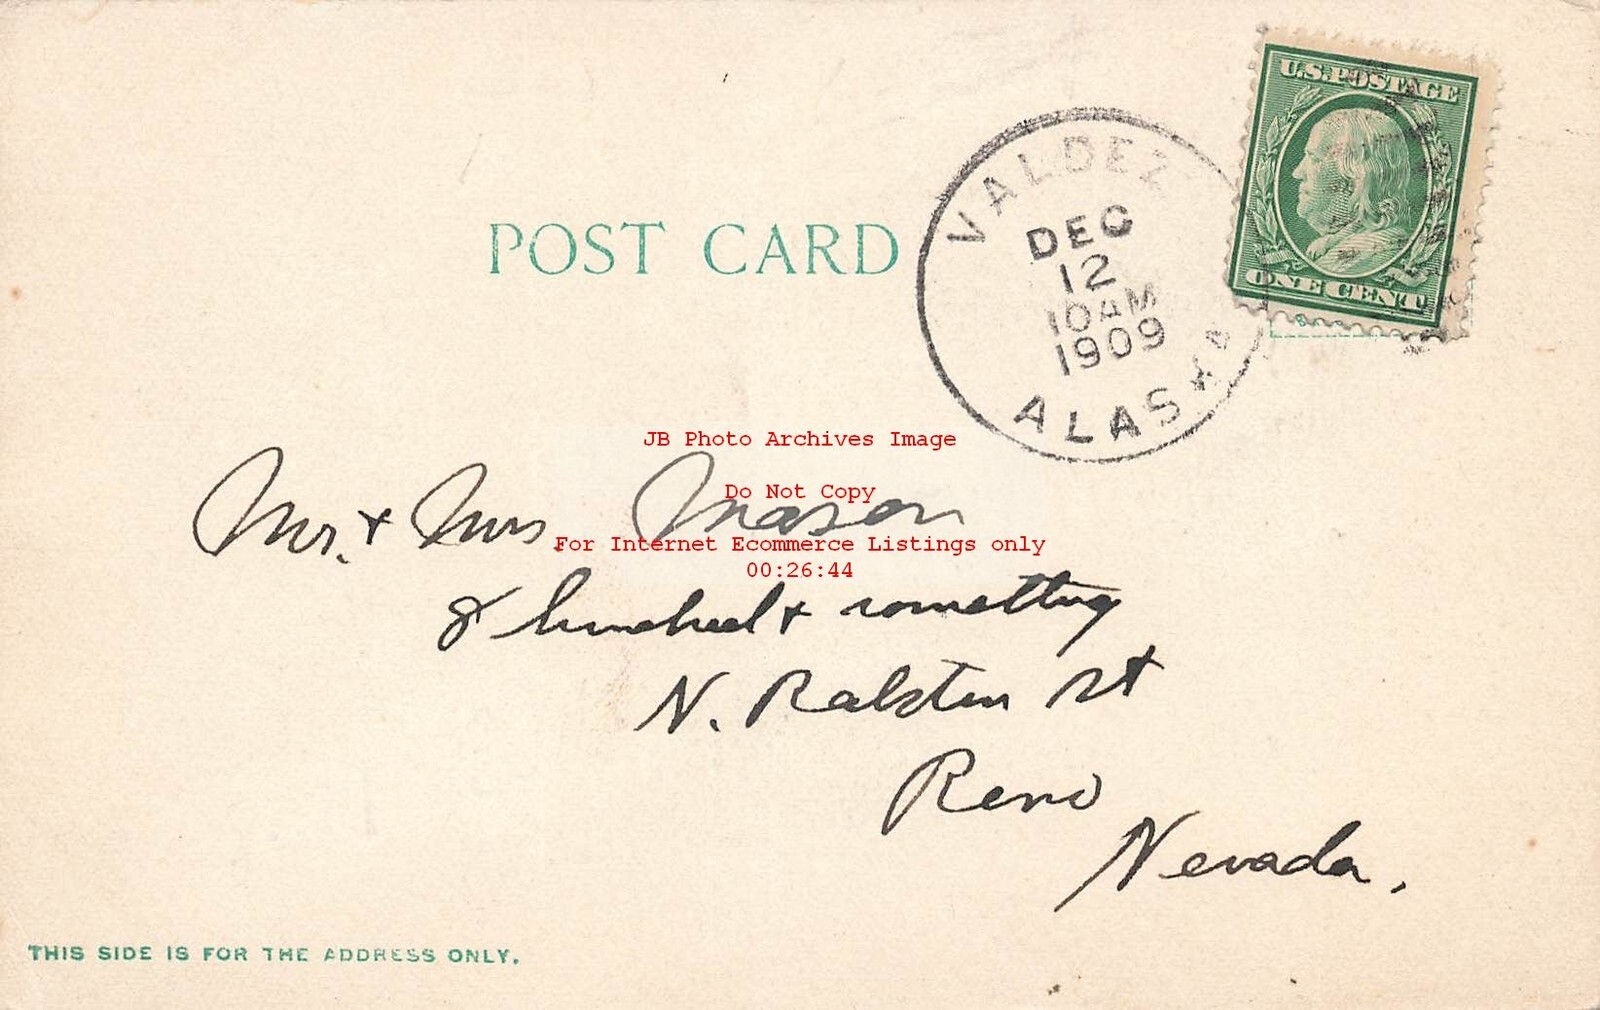 U.S. POSTAGE
ONE CENT
VALDEZ
DEC
12
10 AM
1909
ALASKA
POST CARD
JB Photo Archives Image
Do Not Copy
For Internet Ecommerce Listings only
00:26:44
Mr. & Mrs. Mason
8 hundred & something
N. Ralston St
Reno
Nevada.
THIS SIDE IS FOR THE ADDRESS ONLY.